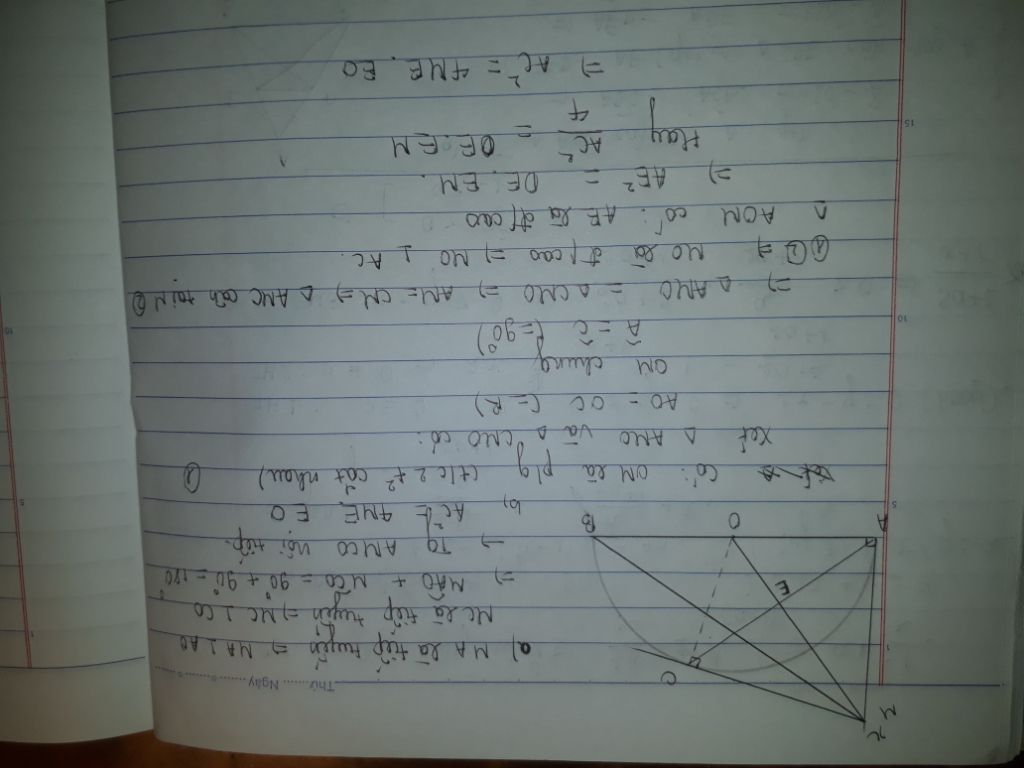 Thứ Ngày
a) MA là tiếp tuyến => MA ⊥ AO
MC là tiếp tuyến => MC ⊥ CO
=> MÂO + MĈO = 90° + 90° = 180°
=> TG AMCO nội tiếp.
b, AC² = 4ME. EO
Có: OM là p/g (t/c 2 t² cắt nhau) ①
Xét △ AMO và △ CMO có:
AO = OC (= R)
OM chung
Â = Ĉ (= 90°)
=> △ AMO = △ CMO => AM = CM => △ AMC cân tại M ②
①② => MO là đ/cao => MO ⊥ AC.
△ AOM có: AE là đ/cao
=> AE² = OE. EM.
Hay AC²/4 = OE. EM
=> AC² = 4ME. EO
x
M
C
E
A
O
B
1
5
10
15
5
10